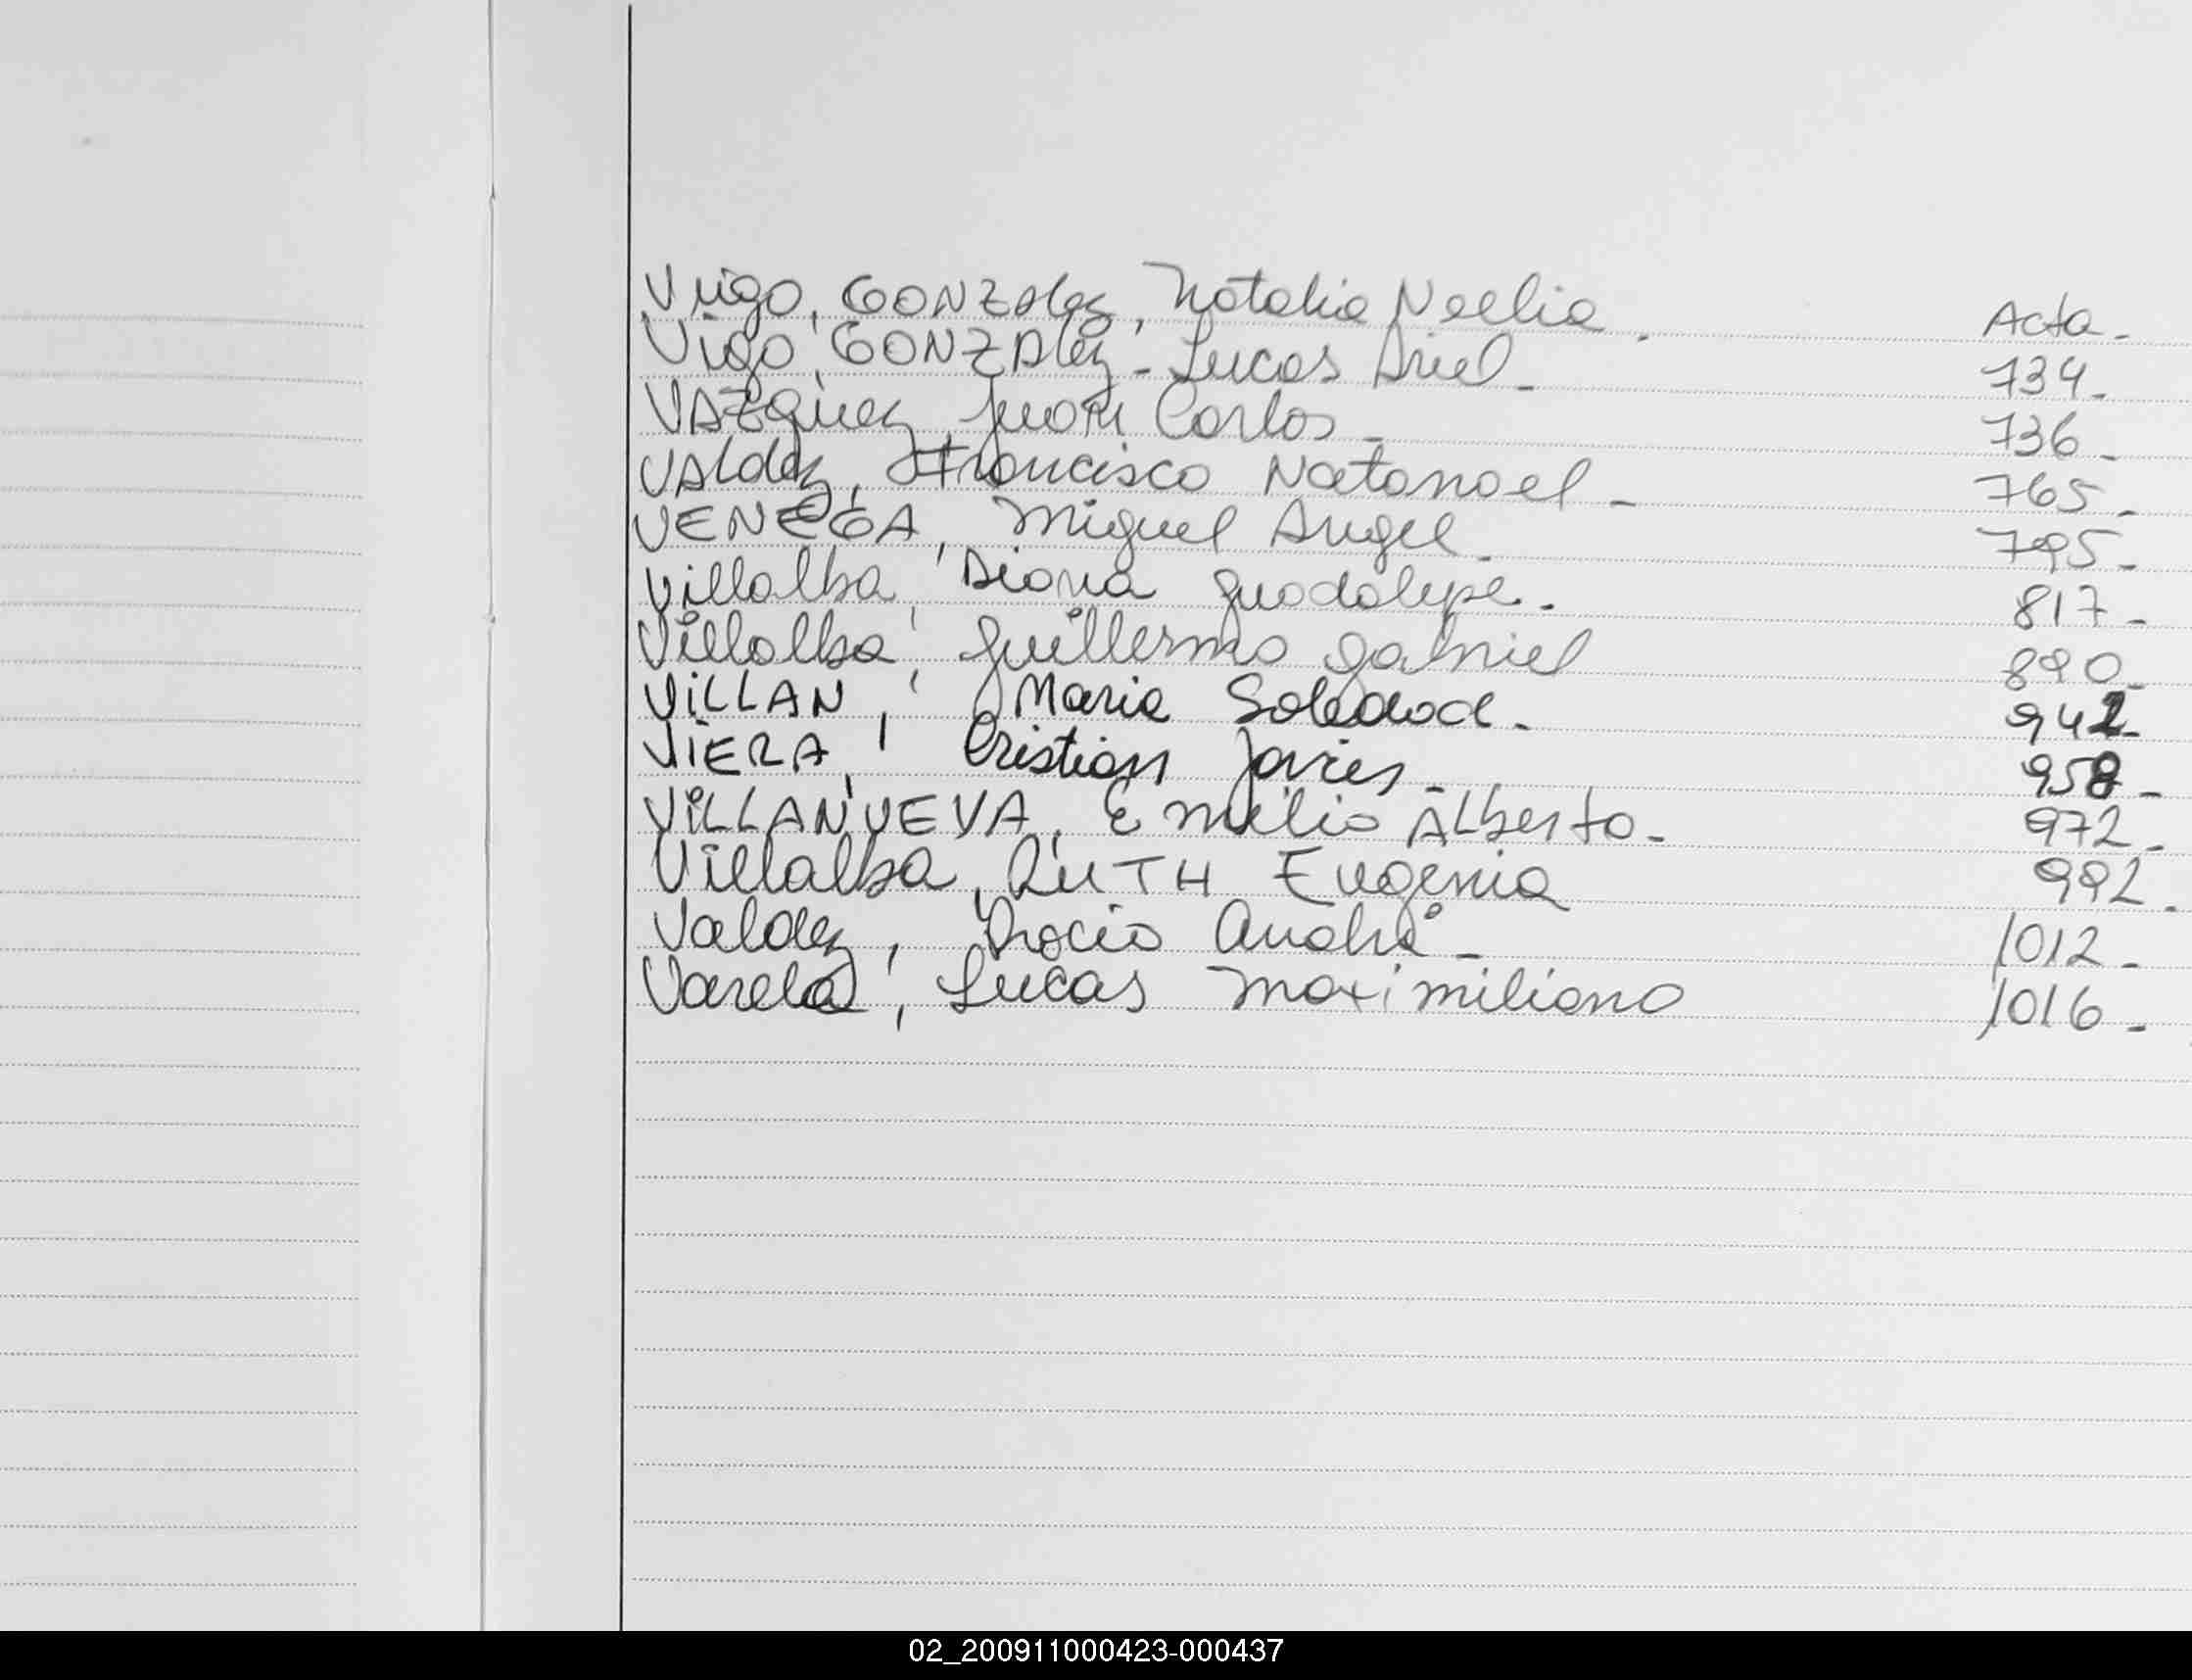 Vigo, GONZAlez, Natalia Noelia. Acta -
Vigo, GONZAlez - Lucas Ariel - 734 -
VAZquez, Juan Carlos - 736 -
VAldez, Francisco Natanael - 765 -
VENEGA, Miguel Angel - 795 -
Villalba, Diana Guadalupe - 817 -
Villalba, Guillermo Gabriel 890 -
ViLLAN, Maria Soledad - 942 -
ViERA, Cristian Javier - 958 -
ViLLANUEVA, Emilio ALberto - 972 -
Villalba, RuTH Eugenia 992 -
Valdez, Rocio - 1012 -
Varela, Lucas Maximiliano 1016 -
02_200911000423-000437